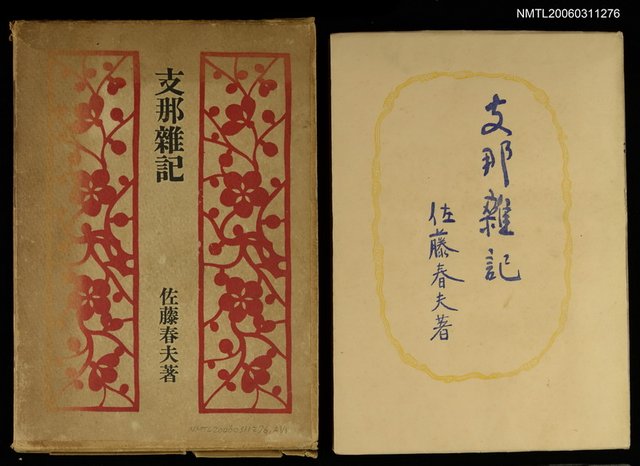 NMTL20060311276
支那雜記
佐藤春夫著
支那雜記
佐藤春夫著